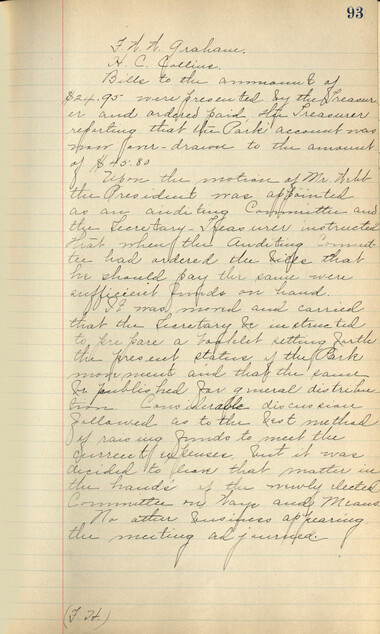 93
F. W. W. Graham.
H. C. Collins.
Bills to the ammount of
$24.95 were presented by the Treasur
er and ordered paid, the Treasurer
reporting that the Park account was
now over-drawn to the amount
of $45.80
Upon the motion of Mr. Webb
the President was appointed
as an auditing Committee and
the Secretary-Treasurer instructed
that when the Auditing Commit
tee had ordered the bills that
he should pay the same were
sufficient funds on hand.
It was moved and carried
that the Secretary be instructed
to prepare a booklet setting forth
the present status of the Park
movement and that the same
be published for general distribu
tion. Considerable discussion
followed as to the best method
of raising funds to meet the
current expenses, but it was
decided to leave that matter in
the hands of the newly elected
Committee on Ways and Means
No other business appearing
the meeting adjourned.
(F. H.)